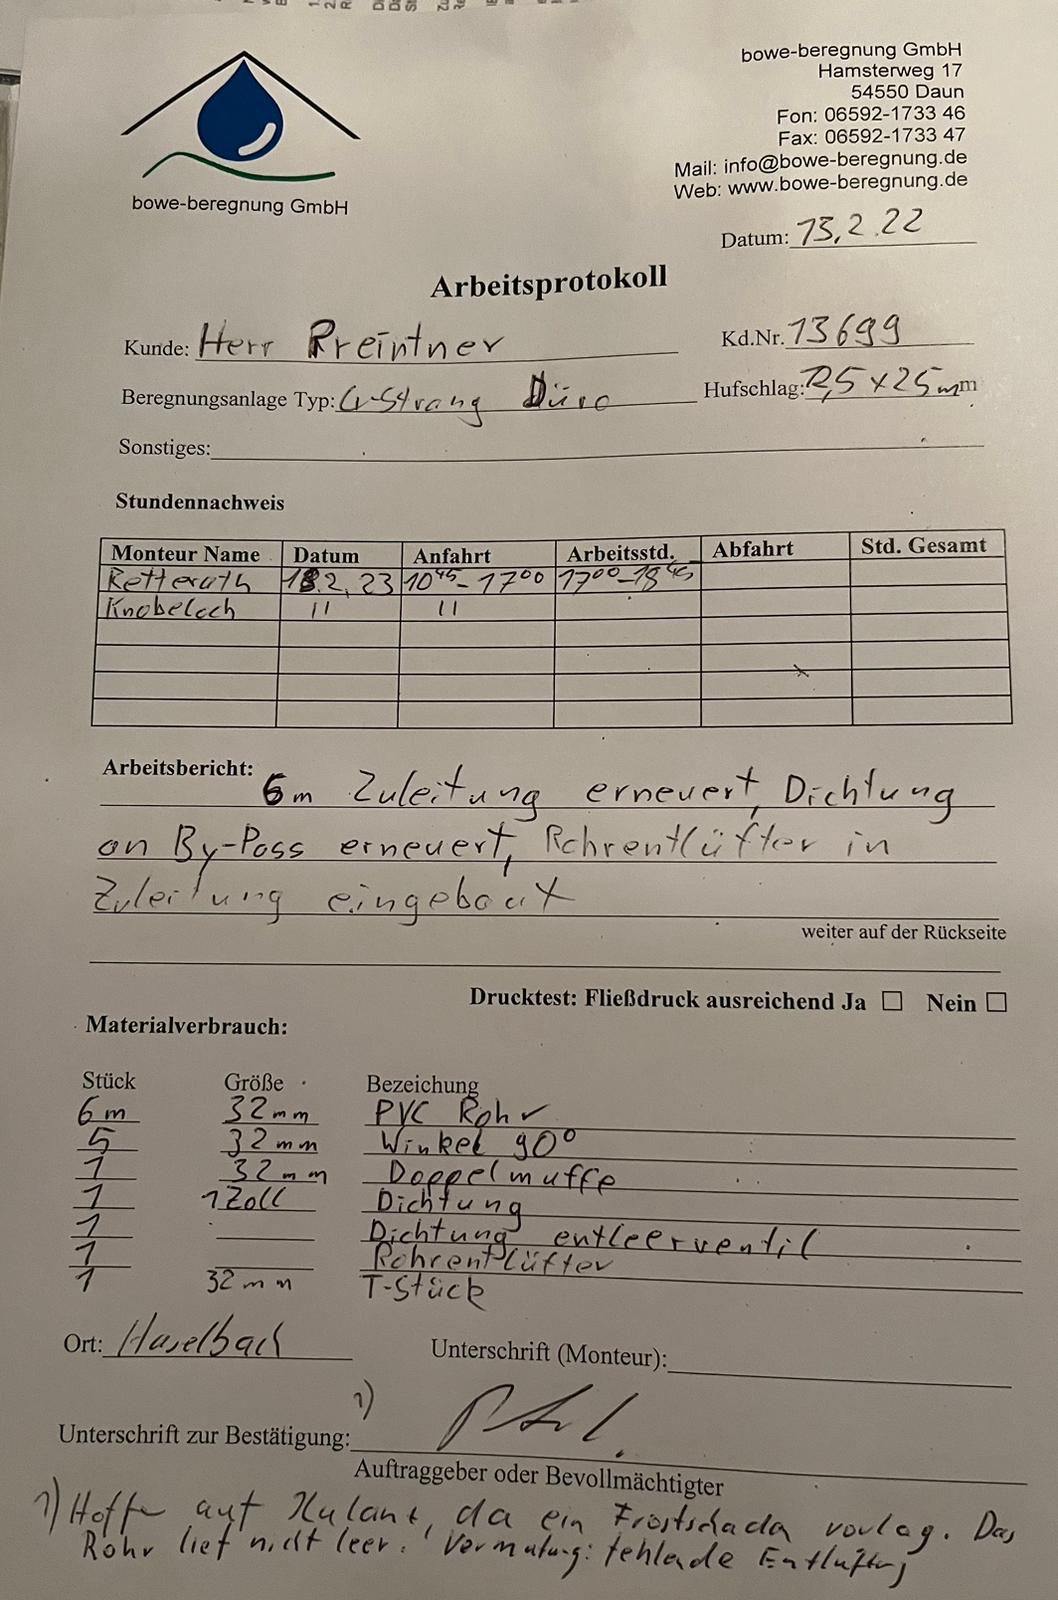 bowe-beregnung GmbH
Hamsterweg 17
54550 Daun
Fon: 06592-1733 46
Fax: 06592-1733 47
Mail: info@bowe-beregnung.de
Web: www.bowe-beregnung.de
bowe-beregnung GmbH
Datum: 13.2.22
Arbeitsprotokoll
Kunde: Herr Preintner
Kd.Nr. 13699
Beregnungsanlage Typ: G-Strang Düro
Hufschlag: 25 x 25 mm
Sonstiges:
Stundennachweis
Monteur Name Datum Anfahrt Arbeitsstd. Abfahrt Std. Gesamt
Retterath 13.2.23 10 45 - 17 00 17 00 - 18 45
Knobeloch " "
Arbeitsbericht:
6m Zuleitung erneuert, Dichtung
an By-Pass erneuert, Rohrentlüfter in
Zuleitung eingebaut
weiter auf der Rückseite
Drucktest: Fließdruck ausreichend Ja ☐ Nein ☐
Materialverbrauch:
Stück Größe Bezeichung
6m 32mm PVC Rohr
5 32mm Winkel 90°
1 32mm Doppelmuffe
1 1 Zoll Dichtung
1 Dichtung entleerventil
1 Rohrentlüfter
1 32mm T-Stück
Ort: Haselbach
Unterschrift (Monteur):
1)
Unterschrift zur Bestätigung:
Auftraggeber oder Bevollmächtigter
1) Hoffe auf Kulanz, da ein Frostschada vorlag. Das
Rohr lief nicht leer. Vermutung: fehlende Entlüftung